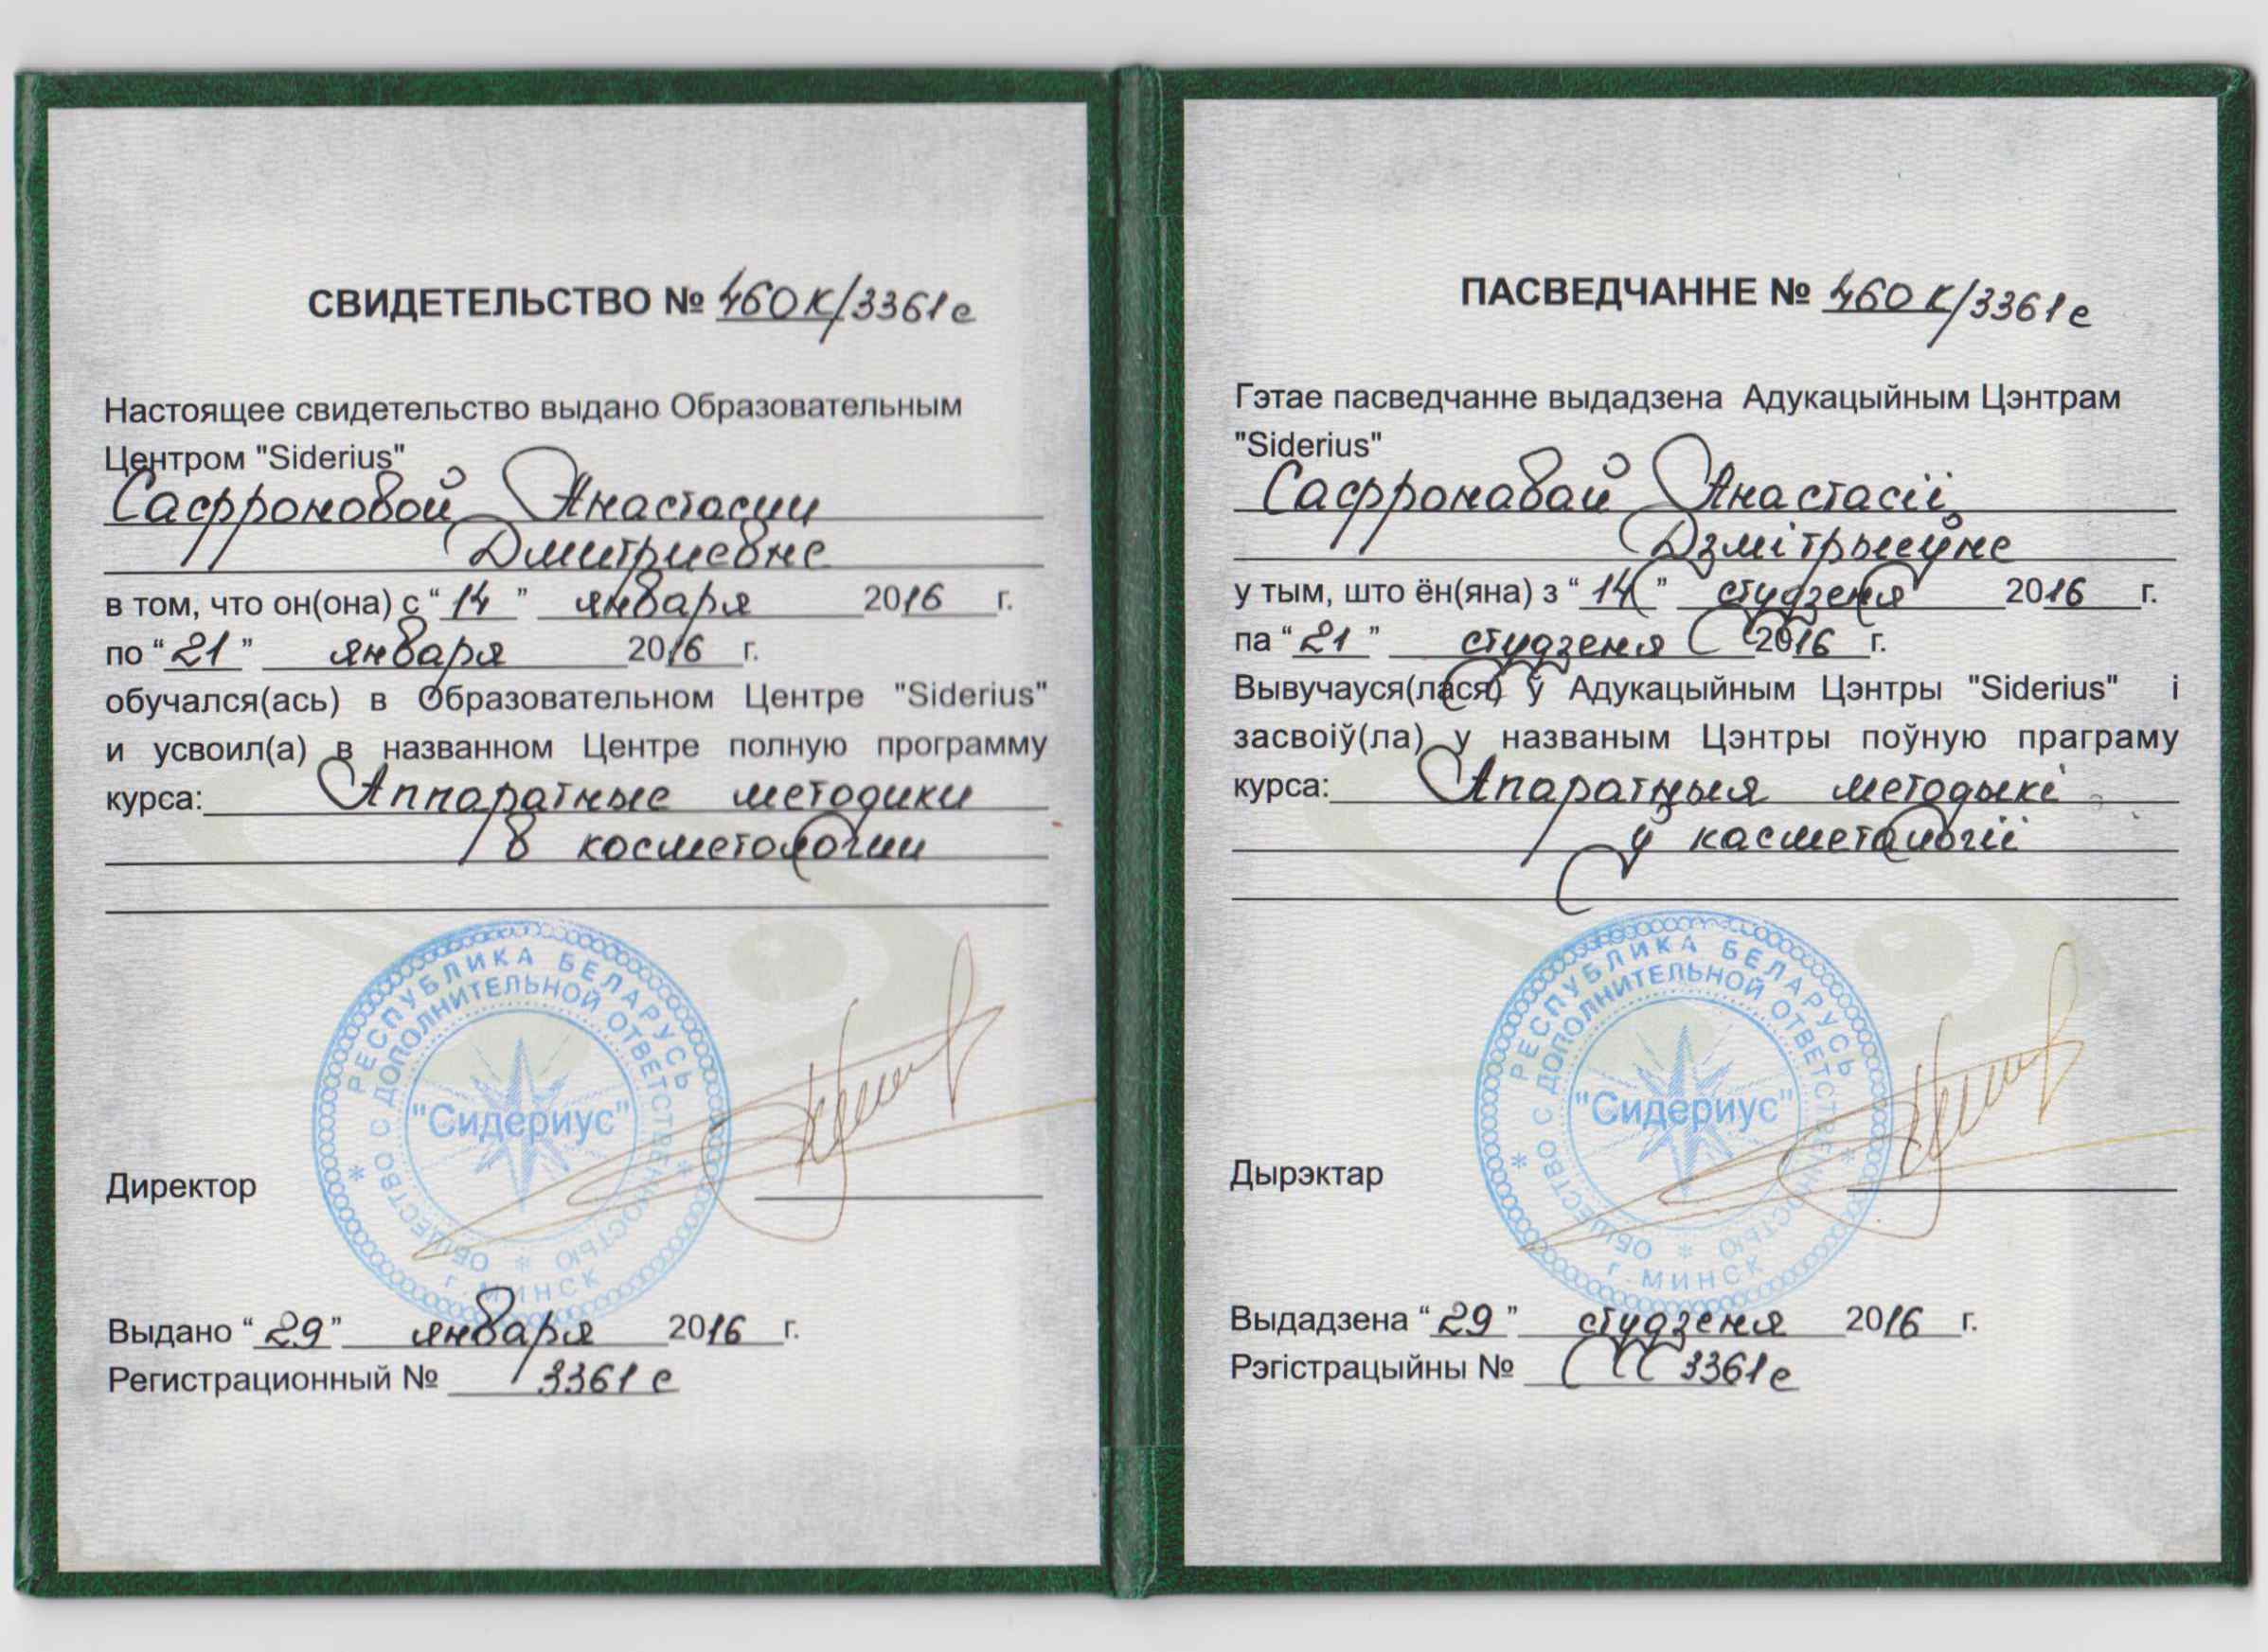 СВИДЕТЕЛЬСТВО № 460к/3361с
Настоящее свидетельство выдано Образовательным
Центром "Siderius"
Сафроновой Анастасии
Дмитриевне
в том, что он(она) с “ 14 ” января 2016 г.
по “ 21 ” января 2016 г.
обучался(ась) в Образовательном Центре "Siderius"
и усвоил(а) в названном Центре полную программу
курса: Аппаратные методики
в косметологии
РЕСПУБЛИКА БЕЛАРУСЬ
ОБЩЕСТВО С ДОПОЛНИТЕЛЬНОЙ ОТВЕТСТВЕННОСТЬЮ
"Сидериус"
г. МИНСК
Директор
Выдано “ 29 ” января 2016 г.
Регистрационный № 3361с
ПАСВЕДЧАННЕ № 460к/3361с
Гэтае пасведчанне выдадзена Адукацыйным Цэнтрам
"Siderius"
Сафронавай Анастасіі
Дзмітрыеўне
у тым, што ён(яна) з “ 14 ” студзеня 2016 г.
па “ 21 ” студзеня 2016 г.
Вывучауся(лася) ў Адукацыйным Цэнтры "Siderius" і
засвоіў(ла) у названым Цэнтры поўную праграму
курса: Апаратныя методыкі
ў касметалогіі
РЕСПУБЛИКА БЕЛАРУСЬ
ОБЩЕСТВО С ДОПОЛНИТЕЛЬНОЙ ОТВЕТСТВЕННОСТЬЮ
"Сидериус"
г. МИНСК
Дырэктар
Выдадзена “ 29 ” студзеня 2016 г.
Рэгістрацыйны № 3361с